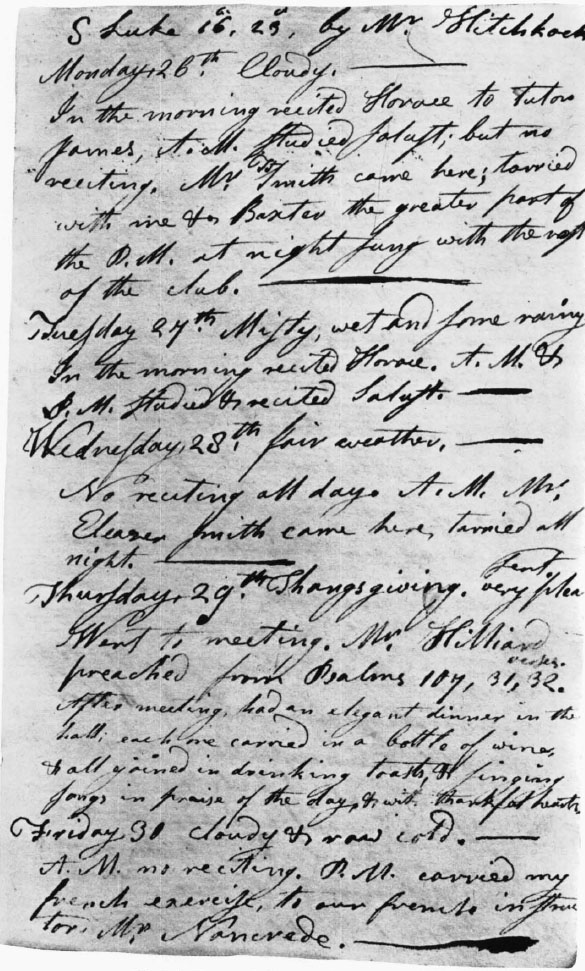 S Luke 16, 23, by Mr. Hitchkock
Monday, 26th. Cloudy.
In the morning recited Horace to Tutor
James, A. M. studied Salust; but no
reciting. Mr. Smith came here; tarried
with me & Baxter the greater part of
the P. M. at night sung with the rest
of the club.
Tuesday 27th. Misty, wet and some rainy
In the morning recited Horace. A. M. &
P. M. studied & recited Salust.
Wednesday, 28th. fair weather.
No reciting all day. A. M. Mr.
Eleazer Smith came here, tarried all
night.
Thursday, 29th. Thangsgiving. very plea
sent.
Went to meeting. Mr. Hilliard
preached from Psalms 107, 31, 32.
verses.
After meeting, had an elegant dinner in the
hall; each one carried in a bottle of wine,
& all joined in drinking toasts, & singing
songs in praise of the day, & with thankful hearts
Friday 30 cloudy & raw cold.
A. M. no reciting. P. M. carried my
french exercise, to our french instruc
tor, Mr. Nancrede.